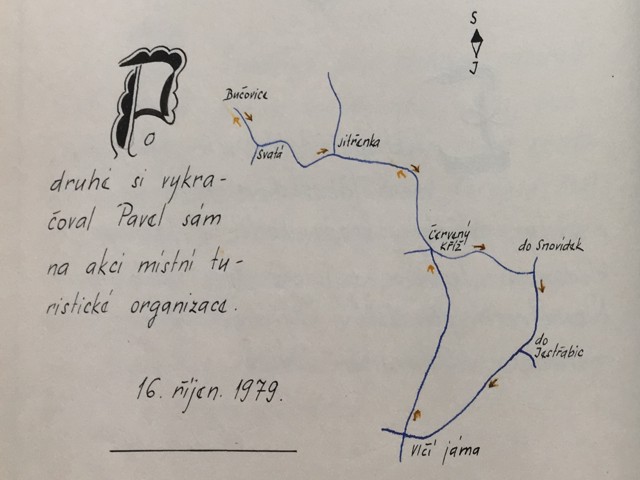 Po
druhé si vykra-
čoval Pavel sám
na akci místní tu-
ristické organizace.
16. říjen. 1979.
S
J
Bučovice
Svatá
Jitřenka
Červený
kříž
do Snovídek
do
Jestřabic
Vlčí jáma